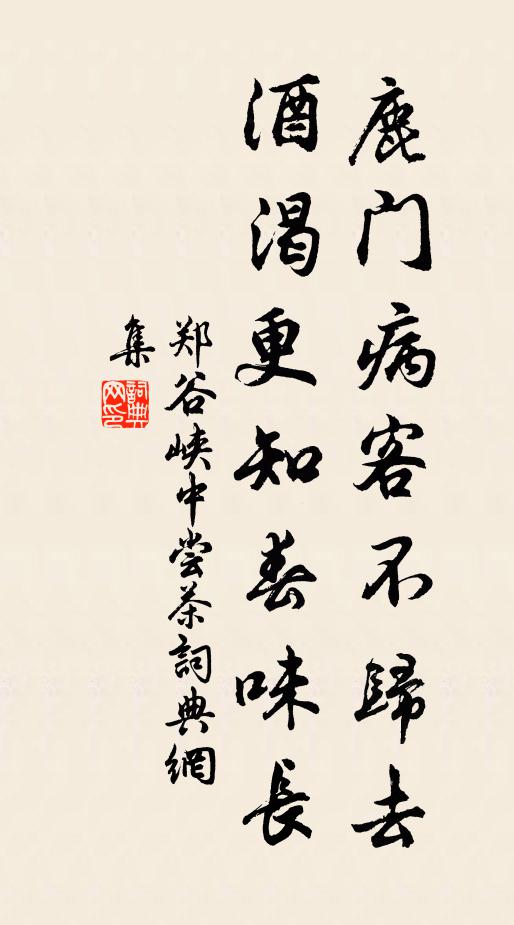 鹿门病客不歸去
酒渴更知春味長
郑谷峡中尝茶詞典網
集
詞典网印